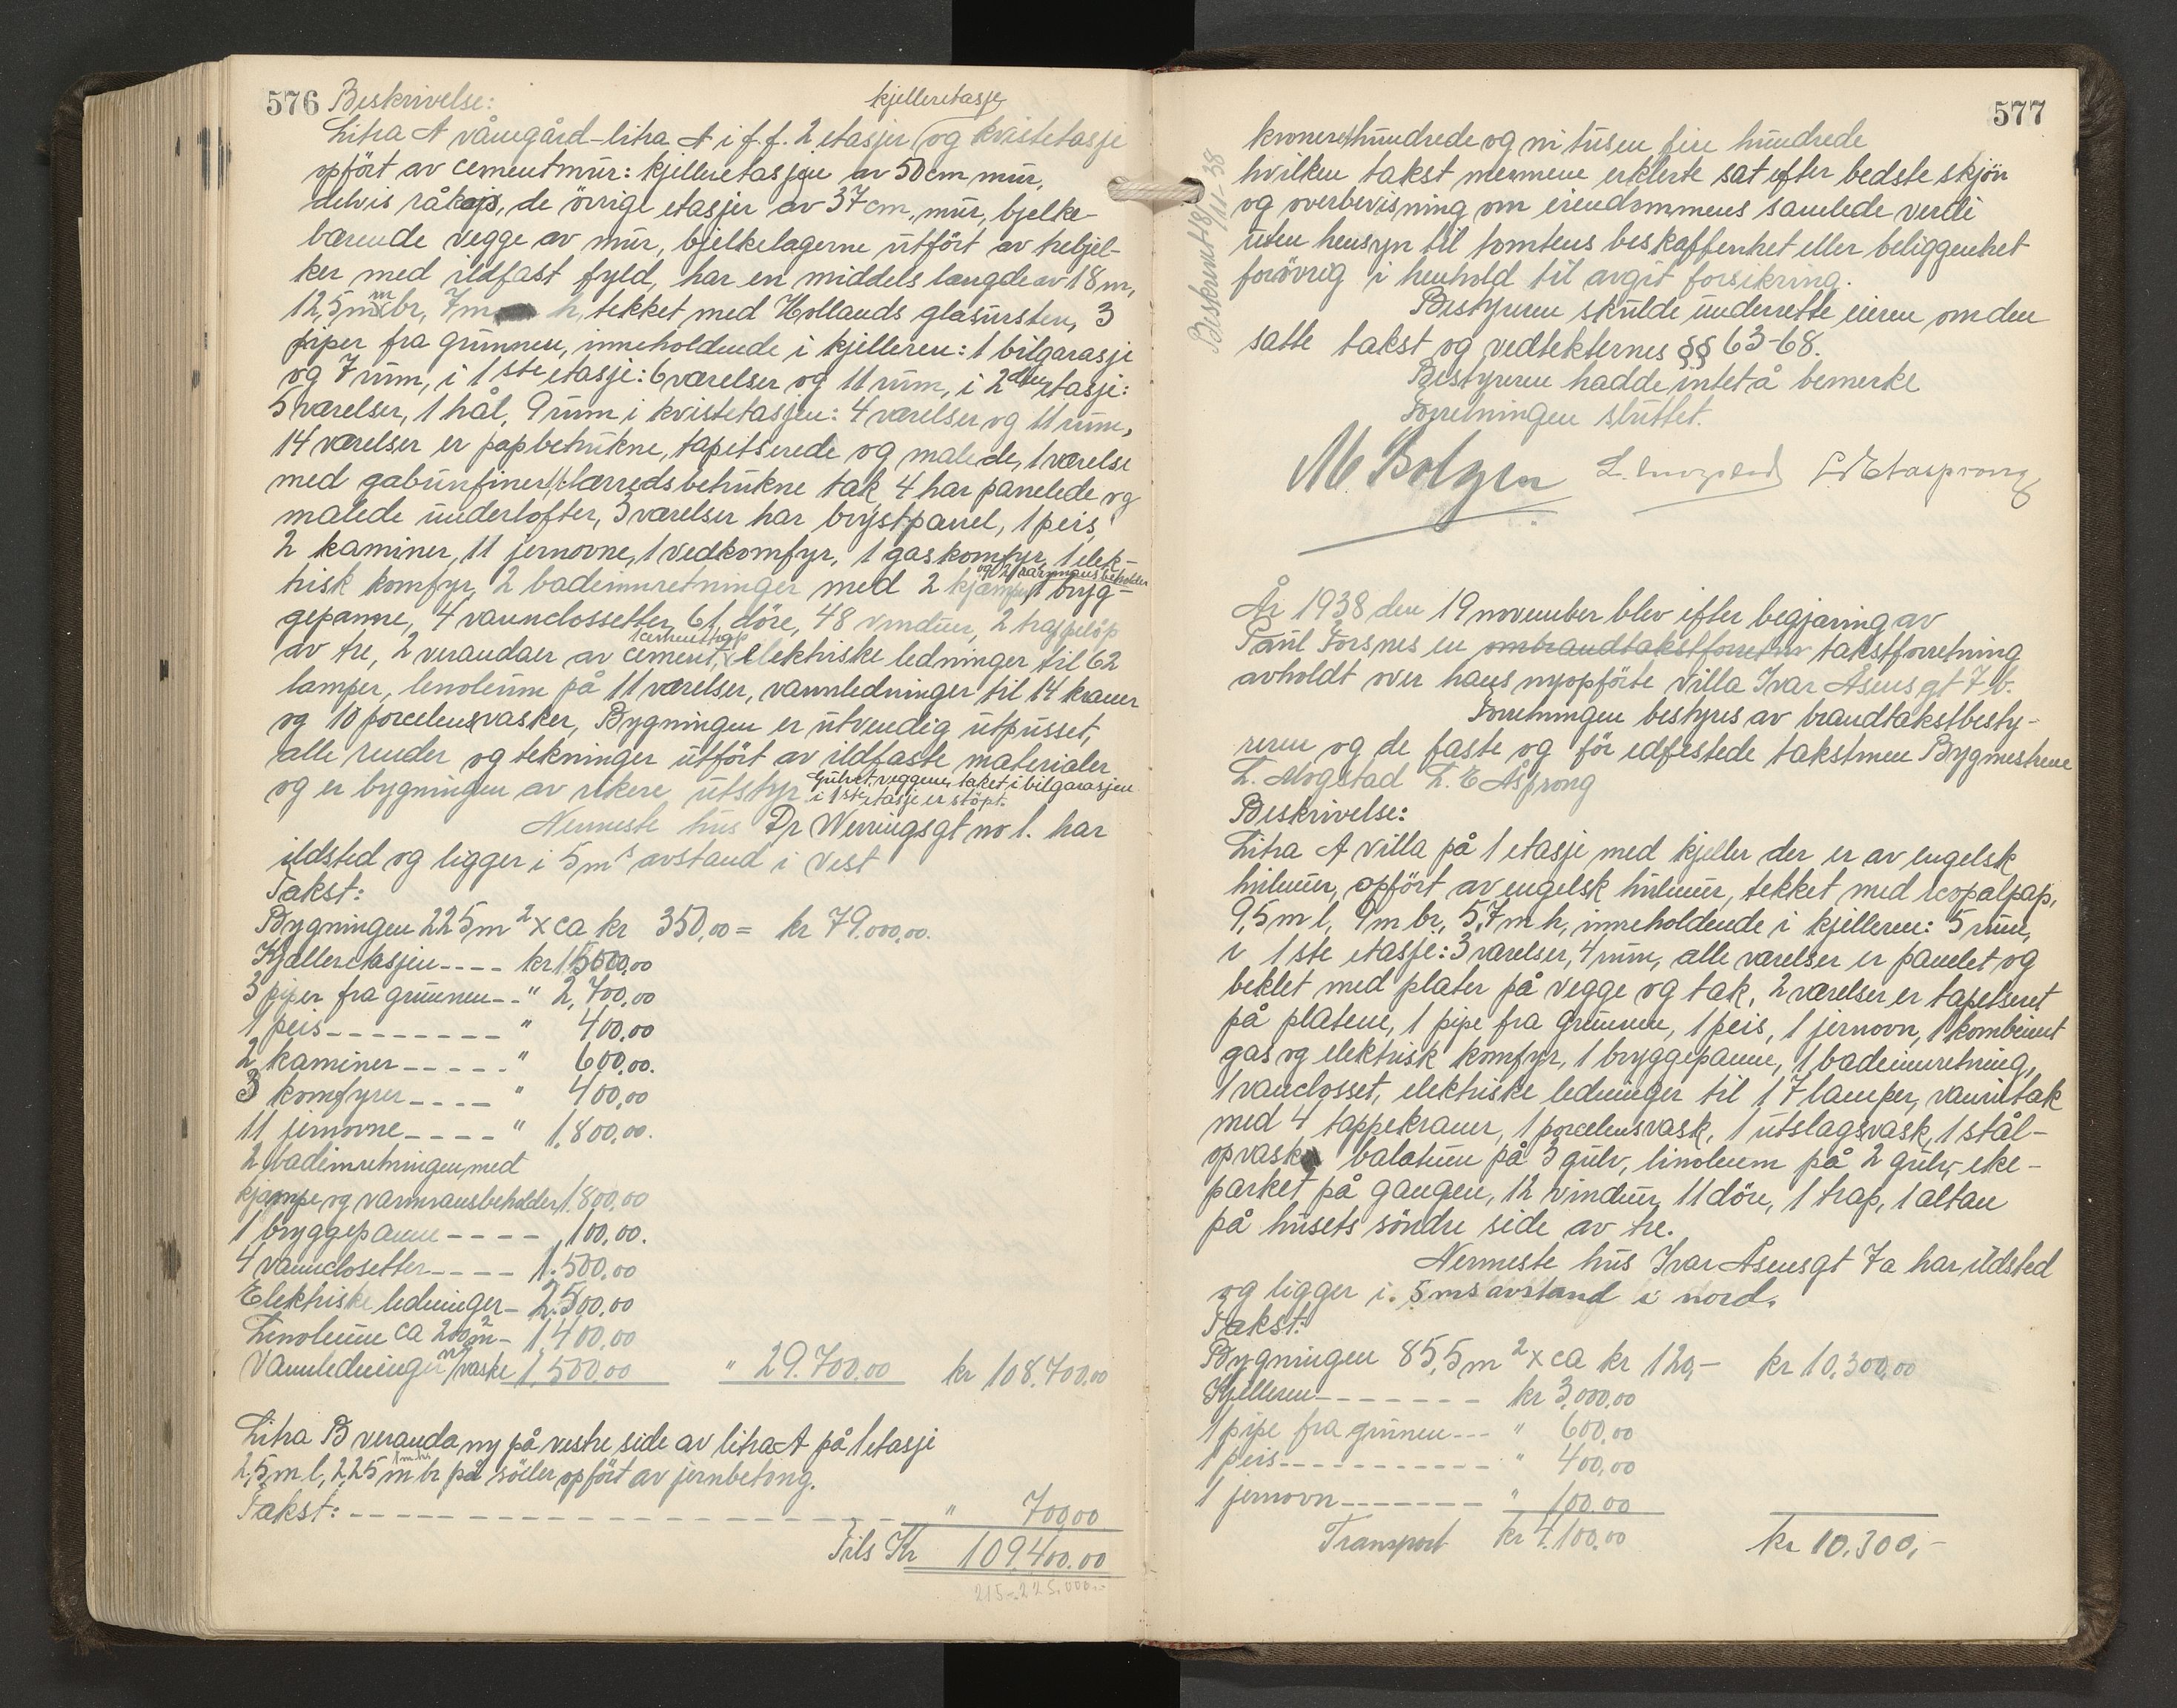 576 Beskrivelse:
kjelleretasje
Litra A våningård - litra A i f.f. 2 etasjer (og kvistetasje
opført av cementmur: kjelleretasjen av 50 cm mur,
delvis råkop, de øvrige etasjer av 37 cm. mur, bjelke-
bærende vegge av mur, bjelkelagerne utført av trebjel-
ker med ildfast fyld, har en middels længde av 18 m,
12,5 m br, 7 m h, tekket med Hollands glasursten, 3
piper fra grunnen, inneholdende i kjelleren: 1 bilgarasje
og 7 rum, i 1ste etasje: 6 værelser og 11 rum, i 2den etasje:
5 værelser, 1 hål, 9 rum i kvistetasjen: 4 værelser og 11 rum,
14 værelser er papbetrukne, tapetserede og malede, 1 værelse
med gabunfiner, lærredsbetrukne tak 4 har panelede og
malede underlofter, 3 værelser har brystpanel, 1 peis,
2 kaminer, 11 jernovne, 1 vedkomfyr, 1 gaskomfyr, 1 elek-
og 2 varmvansbeholder
trisk komfyr, 2 badeinnretninger med 2 kjæmpe, 1 bryg-
gepanne, 4 vannclossetter, 61 døre, 48 vinduer, 2 trappeløp
1 cementtrap
av tre, 2 verandaer av cement, elektriske ledninger til 62
lamper, lenoleum på 11 værelser, vannledninger til 14 kraner
og 10 porcelensvasker, Bygningen er utvendig utpusset,
alle render og tekninger utført av ildfaste materialer
Gulvet, veggene, taket i bilgarasjen
og er bygningen av rikere utstyr i 1ste etasje er støpt.
Nermeste hus Dr Werringsgt no 1. har
ildsted og ligger i 5 ms avstand i vest
Takst:
Bygningen 225 m2 x ca kr 350,00 = kr 79.000,00.
Kjelleretasjen ---- kr 15000,00
3 piper fra grunnen -- " 2,700,00
1 peis -------- " 400,00
2 kaminer ----- " 600,00.
3 komfyrer ---- " 400,00
11 jernovne ---- " 1,800,00.
2 badeinretningen med
kjæmpe og varmvansbeholder 1.800,00
1 bryggepanne ---- 100,00.
4 vannclosetter ---- 1.500,00
Elektriske ledninger - 2.500,00
Linoleum ca 200 m2 - 1,400,00
Vannledninger m/vaske 1.500,00 " 29.700,00 kr 108.700,00
Litra B veranda ny på vestre side av litra A på 1 etasje
2,5 m l, 2,25 m br på søiler opført av jernbetong.
Takst: -------------------- " 700,00
Tils Kr 109.400.00
215-225.000.-
577
Beskrevet 18/11-38
kroneret hundrede og ni tusen fire hundrede
hvilken takst mennene erklerte sat efter bedste skjøn
og overbevisning om eiendommens samlede verdi
uten hensyn til tomtens beskaffenhet eller beliggenhet
forøvrig i henhold til avgit forsikring.
Bestyreren skulde underrette eieren om den
satte takst og vedtekternes §§ 63-68.
Bestyreren hadde intet å bemerke
Forretningen sluttet.
M Bolgen L. Mogstad L E Aasprong
År 1938 den 19 november blev efter begjæring av
Paul Forsnes en ombrandtakstforretn takstforretning
avholdt over hans nyopførte villa Ivar Åsens gt 7 b.
Forretningen bestyres av brandtakstbesty-
reren og de faste og før edfestede takstmen Bygmestrene
L. Mogstad L. E Åsprong
Beskrivelse:
Litra A villa på 1 etasje med kjeller der er av engelsk
hulmur, opført av engelsk hulmur, tekket med icopalpap,
9,5 m l, 9 m br, 5,7 m h, inneholdende i kjelleren: 5 rum,
i 1ste etasje: 3 værelser, 4 rum, alle værelser er panelet og
beklet med plater på vegge og tak, 2 værelser er tapetseret
på platene, 1 pipe fra grunnen, 1 peis, 1 jernovn, 1 kombinert
gas og elektrisk komfyr, 1 bryggepanne, 1 badeinnretning,
1 vanclosset, elektriske ledninger til 17 lamper, vaninntak
med 4 tappekraner, 1 porcelensvask, 1 utslagsvask, 1 stål-
opvask, balatum på 3 gulv, linoleum på 2 gulv, eke-
parket på gangen, 12 vinduer, 11 døre, 1 trap, 1 altan
på husets søndre side av tre.
Nermeste hus Ivar Åsensgt 7a har ildsted
og ligger i 5 ms avstand i nord.
Takst:
Bygningen 85,5 m2 x ca kr 120,- kr 10,300,00
Kjelleren ------- kr 3,000,00
1 pipe fra grunnen --- " 600,00
1 peis ----------- " 400,00
1 jernovn ------- " 100,00
Transport kr 4.100,00 kr 10.300,-